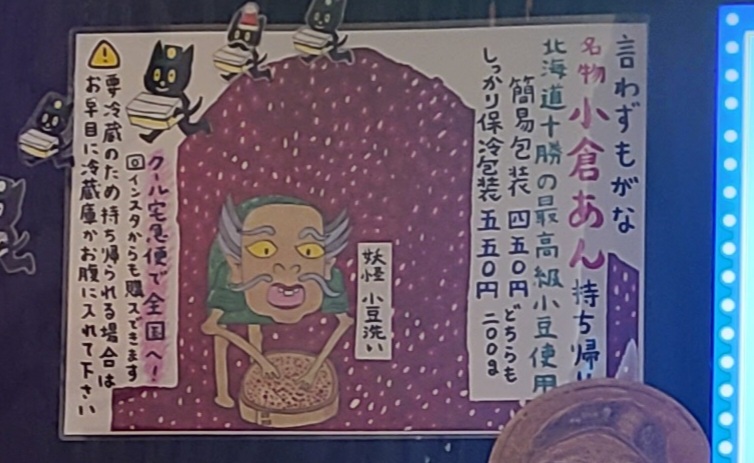 言わずもがな
名物小倉あん持ち帰り
北海道十勝の最高級小豆使用
簡易包装 四五〇円 どちらも
しっかり保冷包装 五五〇円 二〇〇g
妖怪 小豆洗い
クール宅急便で全国へ!
インスタからも購入できます
要冷蔵のため持ち帰られる場合は
お早目に冷蔵庫かお腹に入れて下さい